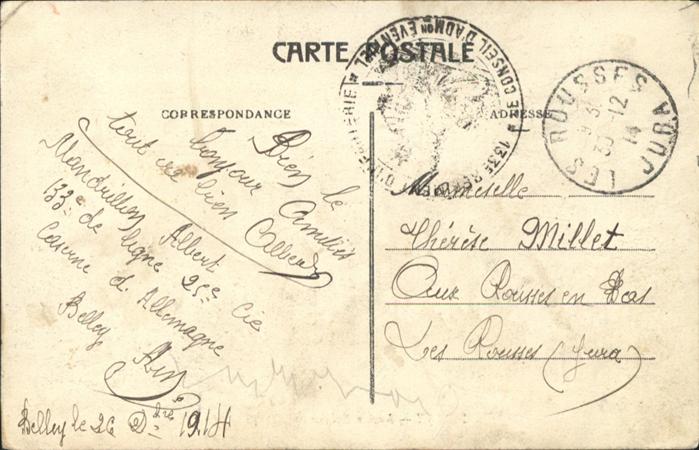 CARTE POSTALE
CORRESPONDANCE
ADRESSE
133E CONSEIL D'ADMon EVENTUEL D'INFANTERIE
LES ROUSSES JURA
30 - 12
14
Bien le
bonjour Amitiés
tout va bien Albert
Mandrillon Albert
133e de ligne 25e Cie
Caserne d'Allemagne
Belley Ain
Belley le 26 Dbre 1914
Mademoiselle
Thérèse Millet
Aux Rousses en Bas
Les Rousses (Jura)